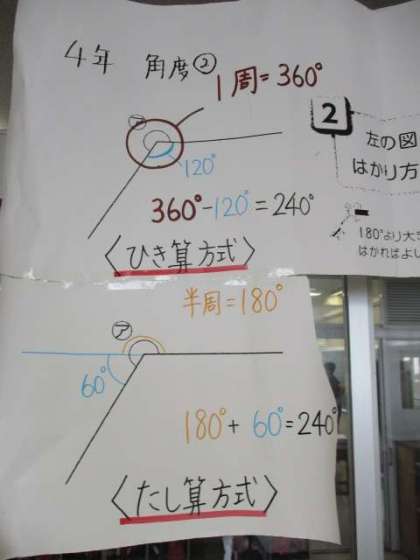 4年 角度②
1周=360°
㋐
120°
360°-120°=240°
〈ひき算方式〉
2
左の図
はかり方
180°より大き
はかればよし
半周=180°
㋐
60°
180°+60°=240°
〈たし算方式〉